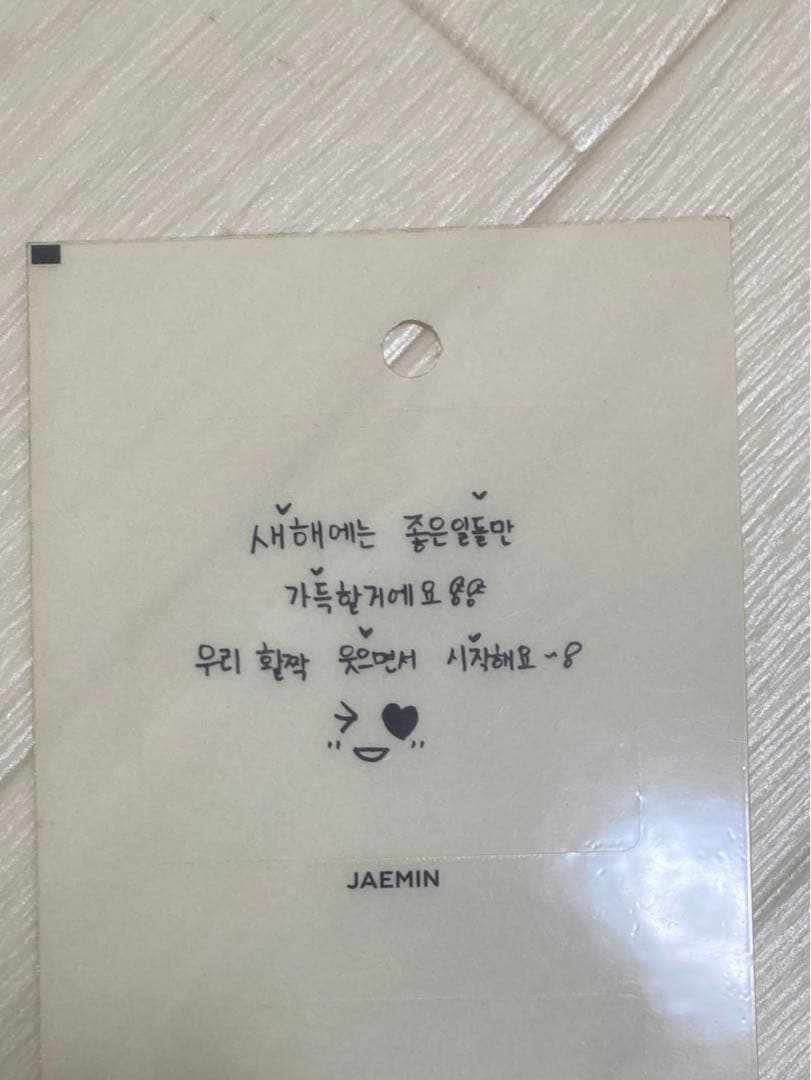 새해에는 좋은일들만
가득할거에요
우리 활짝 웃으면서 시작해요~
JAEMIN